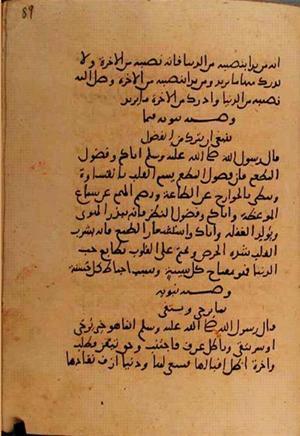 انه من يرد ا بنصيبه من الدنيا فاته نصيبه من الاخرة ولا
يدرك منها ما يريد ومن يرد ا بنصيبه من الاخرة وصل اليه
نصيبه من الدنيا وادرك من الاخرة ما يريد
وصية نبوية فيما
ينبغي ان يترك من الفضول
قال رسول الله صلى الله عليه وسلم اياكم وفضول
المطعم فان فضول المطعم يسم القلب بالقساوة
ويبطي بالجوارح عن الطاعة ويصم الهمم عن سماع
الموعظة واياكم وفضول النظر فانه يبذر الهوى
ويولد الغفلة واياكم واستشعار الطمع فانه يشرب
القلب شدة الحرص ويختم على القلوب بطابع حب
الدنيا فهو مفتاح كل سيية وسبب احباط كل حسنة
وصية نبوية
بما يرجى ويتقى
قال رسول الله صلى الله عليه وسلم انما هو خير يرجى
او شر يتقى وباطل عرف فاجتنب وحق تيقن فطلب
واخرة اظل اقبالها فسعى لها ودنيا ازف نفادها